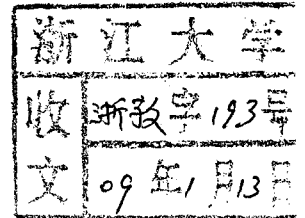 浙江大学
收文
浙教字193号
09年1月13日